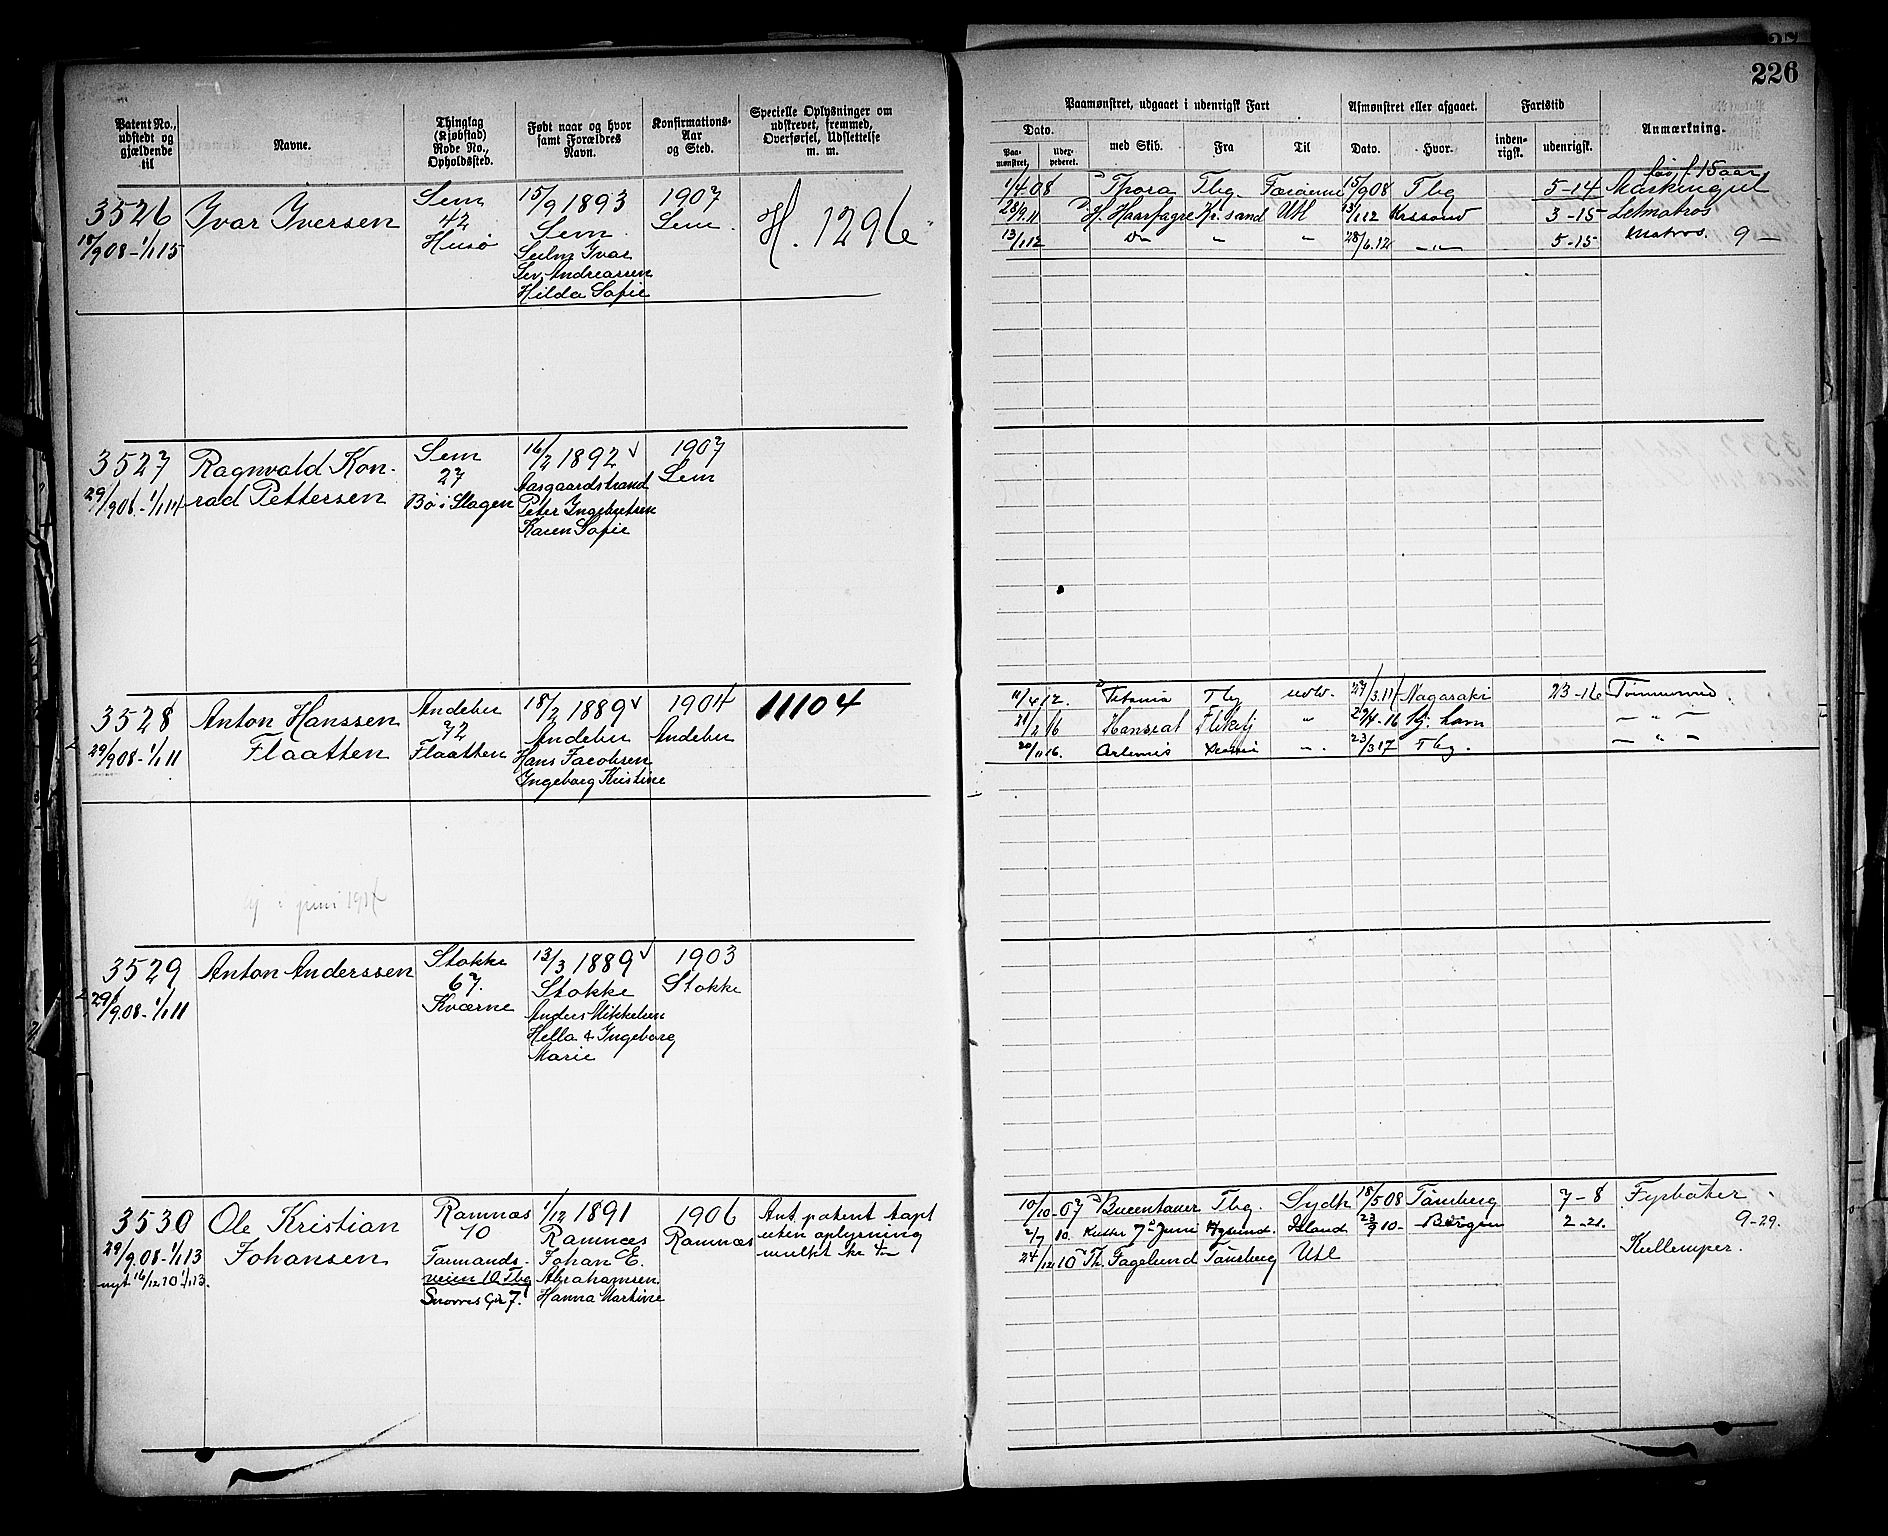 226
Patent No., udstedt og gjældende til
Navne.
Thinglag (Kjøbstad) Rode No., Opholdssted.
Født naar og hvor samt Forældres Navn.
Konfirmations-Aar og Sted.
Specielle Oplysninger om udskrevet, fremmed, Overførsel, Udslettelse m. m.
Paamønstret, udgaaet i udenrigsk Fart
Dato.
Paa-mønstret,
Udex-pederet.
med Skib.
Fra
Til
Afmønstret eller afgaaet.
Dato.
Hvor.
Fartstid
inden-rigsk.
udenrigsk.
Anmærkning.
3526
18/9 08 - 1/1 15
Ivar Iversen
Sem
42
Husø
15/9 1893
Sem
Ivar
Andreassen
Hilda Sofie
1907
Sem.
H. 1296
1/4 08 Thora Tbg. Færøerne 15/9 08 Tbg 5-14
15 aar
28/9 11 H. Haarfagre Kr.sand Utl 13/1 12 Krssand 3-15 Letmatros
13/1 12 Do " " 28/6 12 - " - 5-15 Matros. 9 -
3527
29/9 08 - 1/1 14
Ragnvald Kon-
rad Pettersen
Sem
27
Bø i Slagen
16/2 1892
Aasgaardstrand
Peter Ingebretsen
Karen Sofie
1907
Sem
3528
29/9 08 - 1/1 11
Anton Hanssen
Flaatten
Andebu
72
Flaatten
18/2 1889
Andebu
Hans Jacobsen
Ingeborg Kristine
1904
Andebu
11104
11/4 12. Titania Tbg udlv. Nagasaki 23-16 Tømmermd
16 Hanseat " 16 Kj. havn - " -
20/11 16. Artemis " 23/3 17 Tbg. - " -
i juni 1914
3529
29/9 08 - 1/1 11
Anton Anderssen
Stokke
67.
Kværne
13/3 1889
Stokke
Anders Mikkelsen
Hella & Ingeborg
Marie
1903
Stokke
3530
29/9 08 - 1/1 13
nyt 16/12 10 1/1 13.
Ole Kristian
Johansen
Ramnæs
10
Farmands-
veien 10 Tbg
Snorres Gt 7.
1/12 1891
Ramnæs
Johan E.
Abrahamsen
Hanna Martine
1906
Ramnæs
Ant patent tapt
uten oplysning
mulkt kr 4-
10/10 07 Bucentaur Tbg. Sydh 18/5 08 Tønsberg 7-8 Fyrbøter
2/7 10. 7de Juni Island 10 - Bergen 2-21. 9-29.
24/12 10 Th. Fagelund Tønsberg Utl Kullemper.